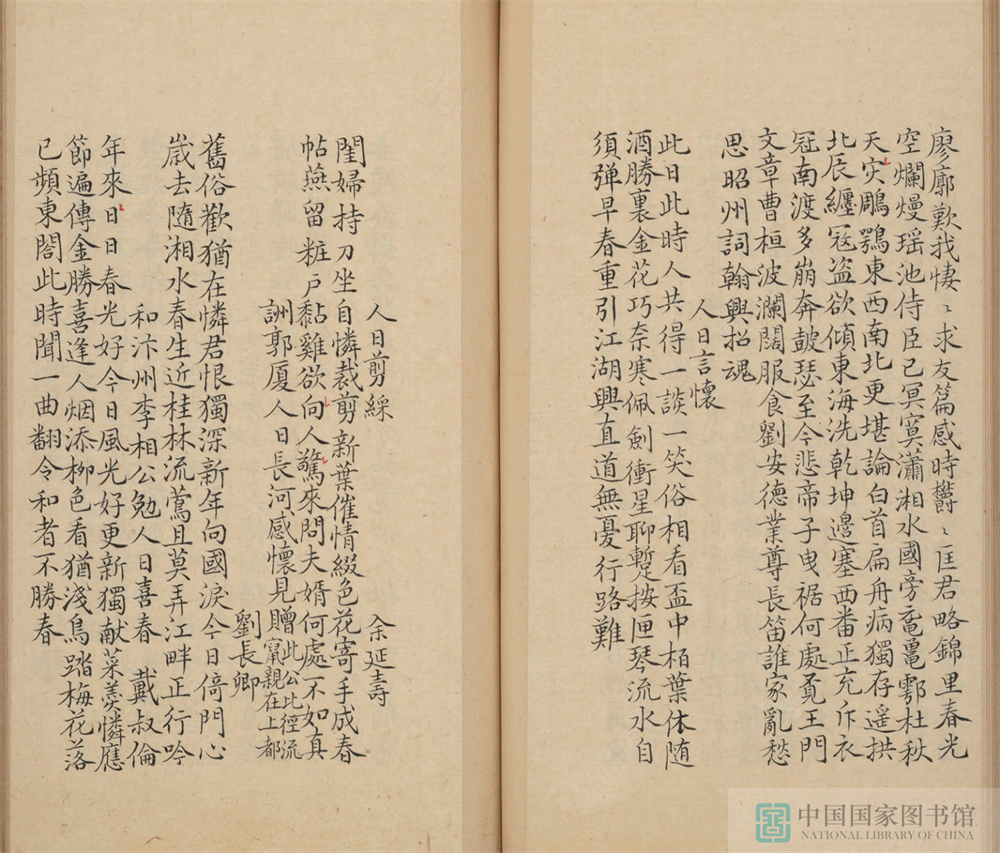 廖廓歎我悽〻求友篇感時欝〻匡君略錦里春光
空爛熳瑶池侍臣已冥寞瀟湘水國旁黿鼉鄠杜秋
天失鵰鶚東西南北更堪論白首扁舟病獨存遥拱
北辰纒冦盗欲傾東海洗乾坤邉塞西番正充斥衣
冠南渡多崩奔皷瑟至今悲帝子曳裾何處覔王門
文章曹桓波瀾闊服食劉安德業尊長笛誰家亂愁
思昭州詞翰與招魂
人日言懷
此日此時人共得一談一笑俗相看盃中栢葉休随
酒勝裏金花巧奈寒佩劍衝星聊蹔按匣琴流水自
須弹早春重引江湖興直道無憂行路難
人日剪綵 余延壽
閨婦持刀坐自憐裁剪新葉催情綴色花寄手成春
帖燕留粧戸黏雞欲向人驚來問夫婿何處不如真
詶郭厦人日長河感懷見贈此公比徑流竄親在上都
劉長卿
舊俗歡猶在憐君恨獨深新年向國淚今日倚門心
歲去隨湘水春生近桂林流鶯且莫弄江畔正行吟
和汴州李相公勉人日喜春 戴叔倫
年來日日春光好今日風光好更新獨献菜羮憐應
節遍傳金勝喜逢人烟添栁色看猶淺鳥踏梅花落
已頻東閤此時聞一曲翻令和者不勝春
中国国家图书馆
NATIONAL LIBRARY OF CHINA